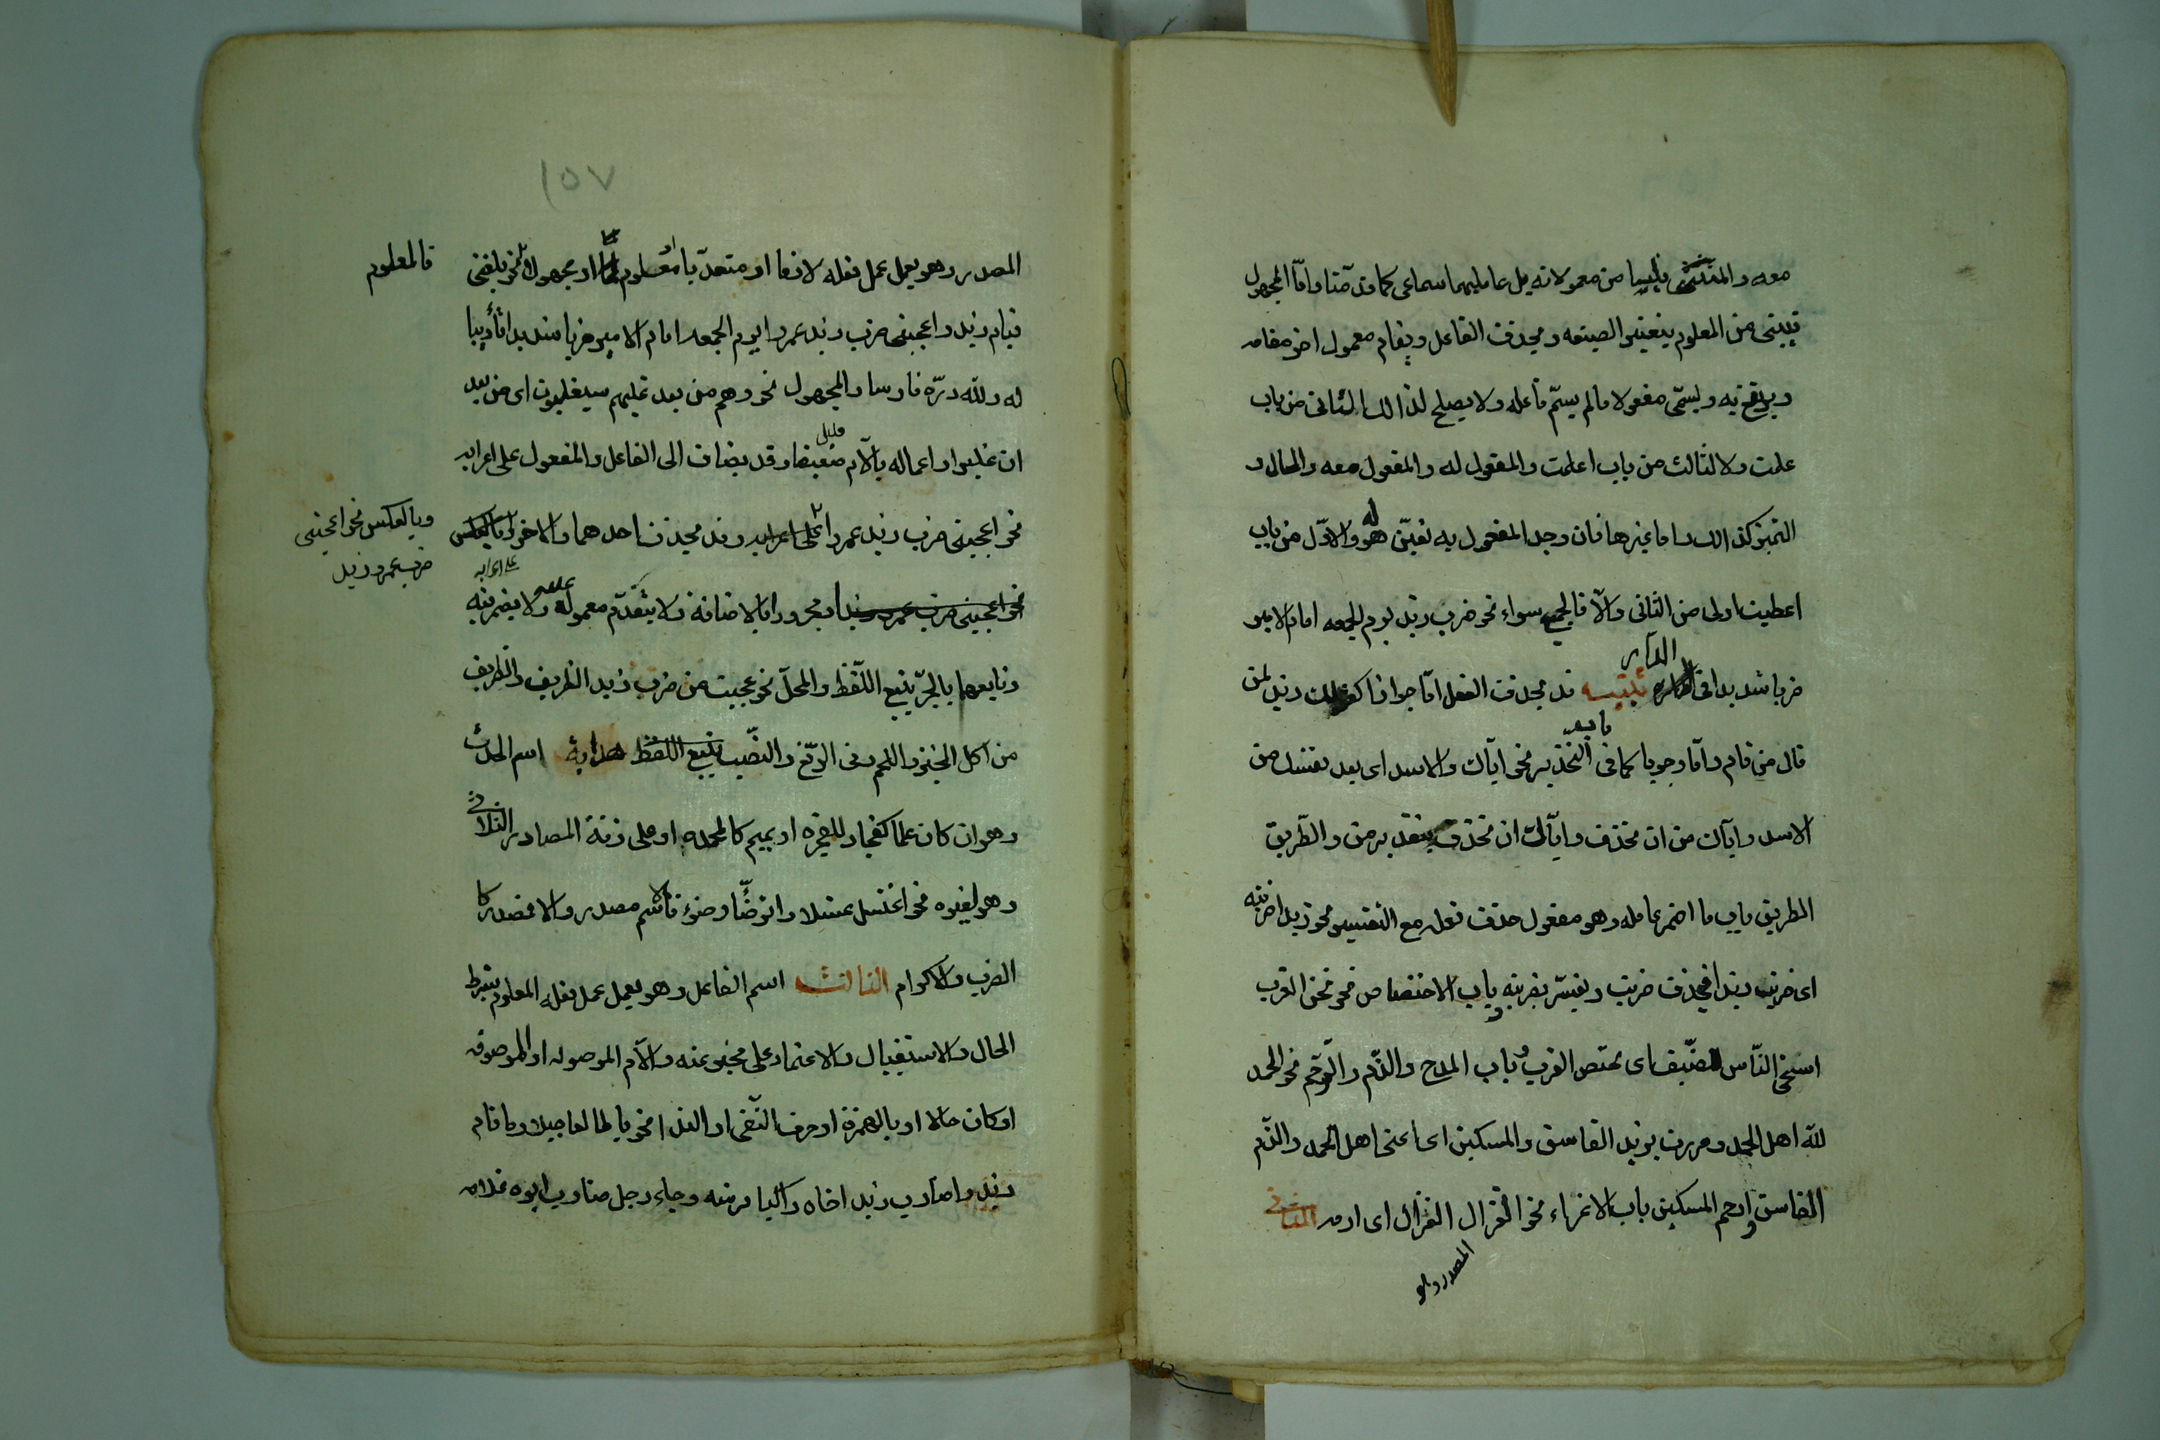 معه والمستثنى فليسا من معمولاته بل عاملهما سماعى كما وأما المجهول
فيبنى من المعلوم بتغيير الصيغه ويحذف الفاعل ويقام معمول اخر مقامه
ويرتفع به ويسمّى مفعولا مالم يسمّ فاعله ولا يصلح لذالك الثانى من باب
علمت ولا الثالث من باب اعلمت والمفعول له والمفعول معه والحال و
التميز كذالك واما غيرها فان وجد المفعول به تعيّن هو له والاوّل من باب
اعطيت اولى من الثانى والّا فالجميع سواء نحو ضرب زيد يوم الجمعه امام الامير
ضربا شديدا فى الدار تنبيه قد يحذف الفعل امّا جوازا كقولك زيد لمن
قال من قام وامّا وجوبا كما فى التحذير نحو ايّاك والاسد اى بعد نفسك من
الاسد وايّاك من ان تحذف وايّاك ان تحذف بتقدير من والطّريق
الطريق وباب ما اضمر عامله وهو مفعول حذف فعله مع التفسير نحو زيدا ضربته
اى ضربت زيدا فحذف ضربت ويفسّر بضربته وباب الاختصاص نحو نحن العرب
اسخى النّاس للضّيف اى نختص العرب وباب المدح والذّم والتّرحّم نحو الحمد
للّه اهل الحمد ومررت بزيد الفاسق والمسكين اى اعنى اهل الحمد والذّم
الفاسق وارحم المسكين وباب الاغراء نحو الغزال الغزال اى ارمه الثانى
المصدر وهو
١٥٧
المصدر وهو يعمل عمل فعله لازما او متعدّيا معلوما او مجهولا نحو بلغنى
فالمعلوم
قيام زيد واعجبنى ضرب زيد عمروا يوم الجمعه امام الامير ضربا شديدا تأديبا
له وللّه درّه فارسا والمجهول نحو وهم من بعد غلبهم سيغلبون اى من بعد
ان غلبوا واعماله بالّام ضعيف قليل وقد يضاف الى الفاعل والمفعول على اعرابه
نحو اعجبنى ضرب زيد عمروا على اعرابه وقد يحذف احدهما والاخر وبالعكس
وبالعكس نحو اعجبنى
ضرب عمرو زيد
نحو اعجبنى ضرب عمرو زيد او مجرورا بالاضافة ولا يتقدّم معموله عليه ولا يضمر فيه
على اعرابه
وتابعهما بالجرّ يتبع اللّفظ والمحلّ نحو عجبت من ضرب زيد الظريف والظريف
من اكل الخبز واللحم وفى الرّفع والنّصب يتبع اللفظ هداية اسم الحدث
وهو ان كان علما كفجار للفجره او بميم كالمحمده او على زنة المصادر الثلاثى
وهو لغيره نحو اغتسل غسلا واتوضّأ وضوء فالاسم مصدر والا فمصدر كا
الضرب والاكرام الثالث اسم الفاعل وهو يعمل عمل فعله المعلوم بشرط
الحال والاستقبال والاعتماد على مخبر عنه والّام الموصوله او الموصوف
او كان حالا او بالهمزة او حرف النّفى او الندا نحو يا طالعا جبلا وما قام
زيد واضارب زيد اخاه وراكبا فرسه وجاء رجل ضارب ابوه غلامه